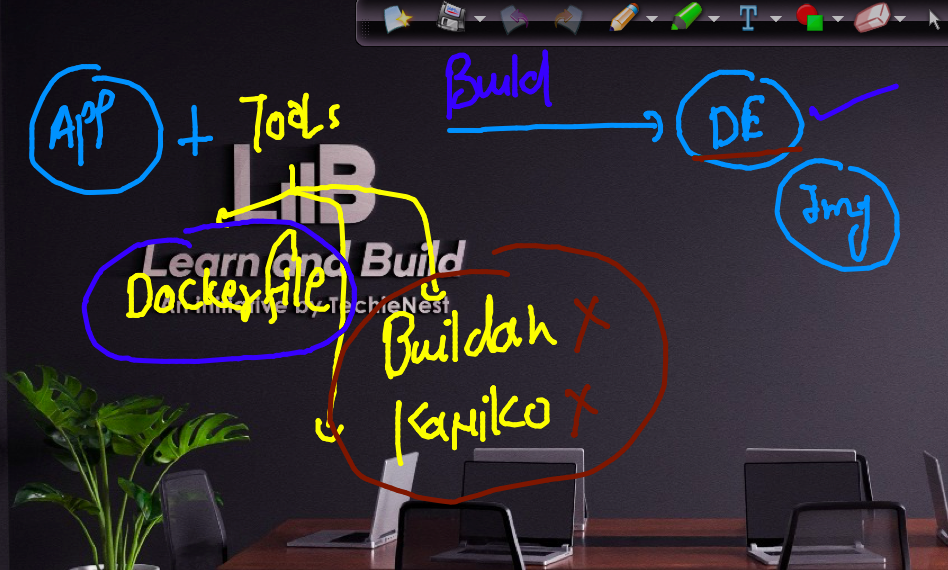 Build
App + Tools
DE
Img
LIIB
Learn and Build
An initiative by TechieNest
Dockerfile
Buildah X
Kaniko X
T